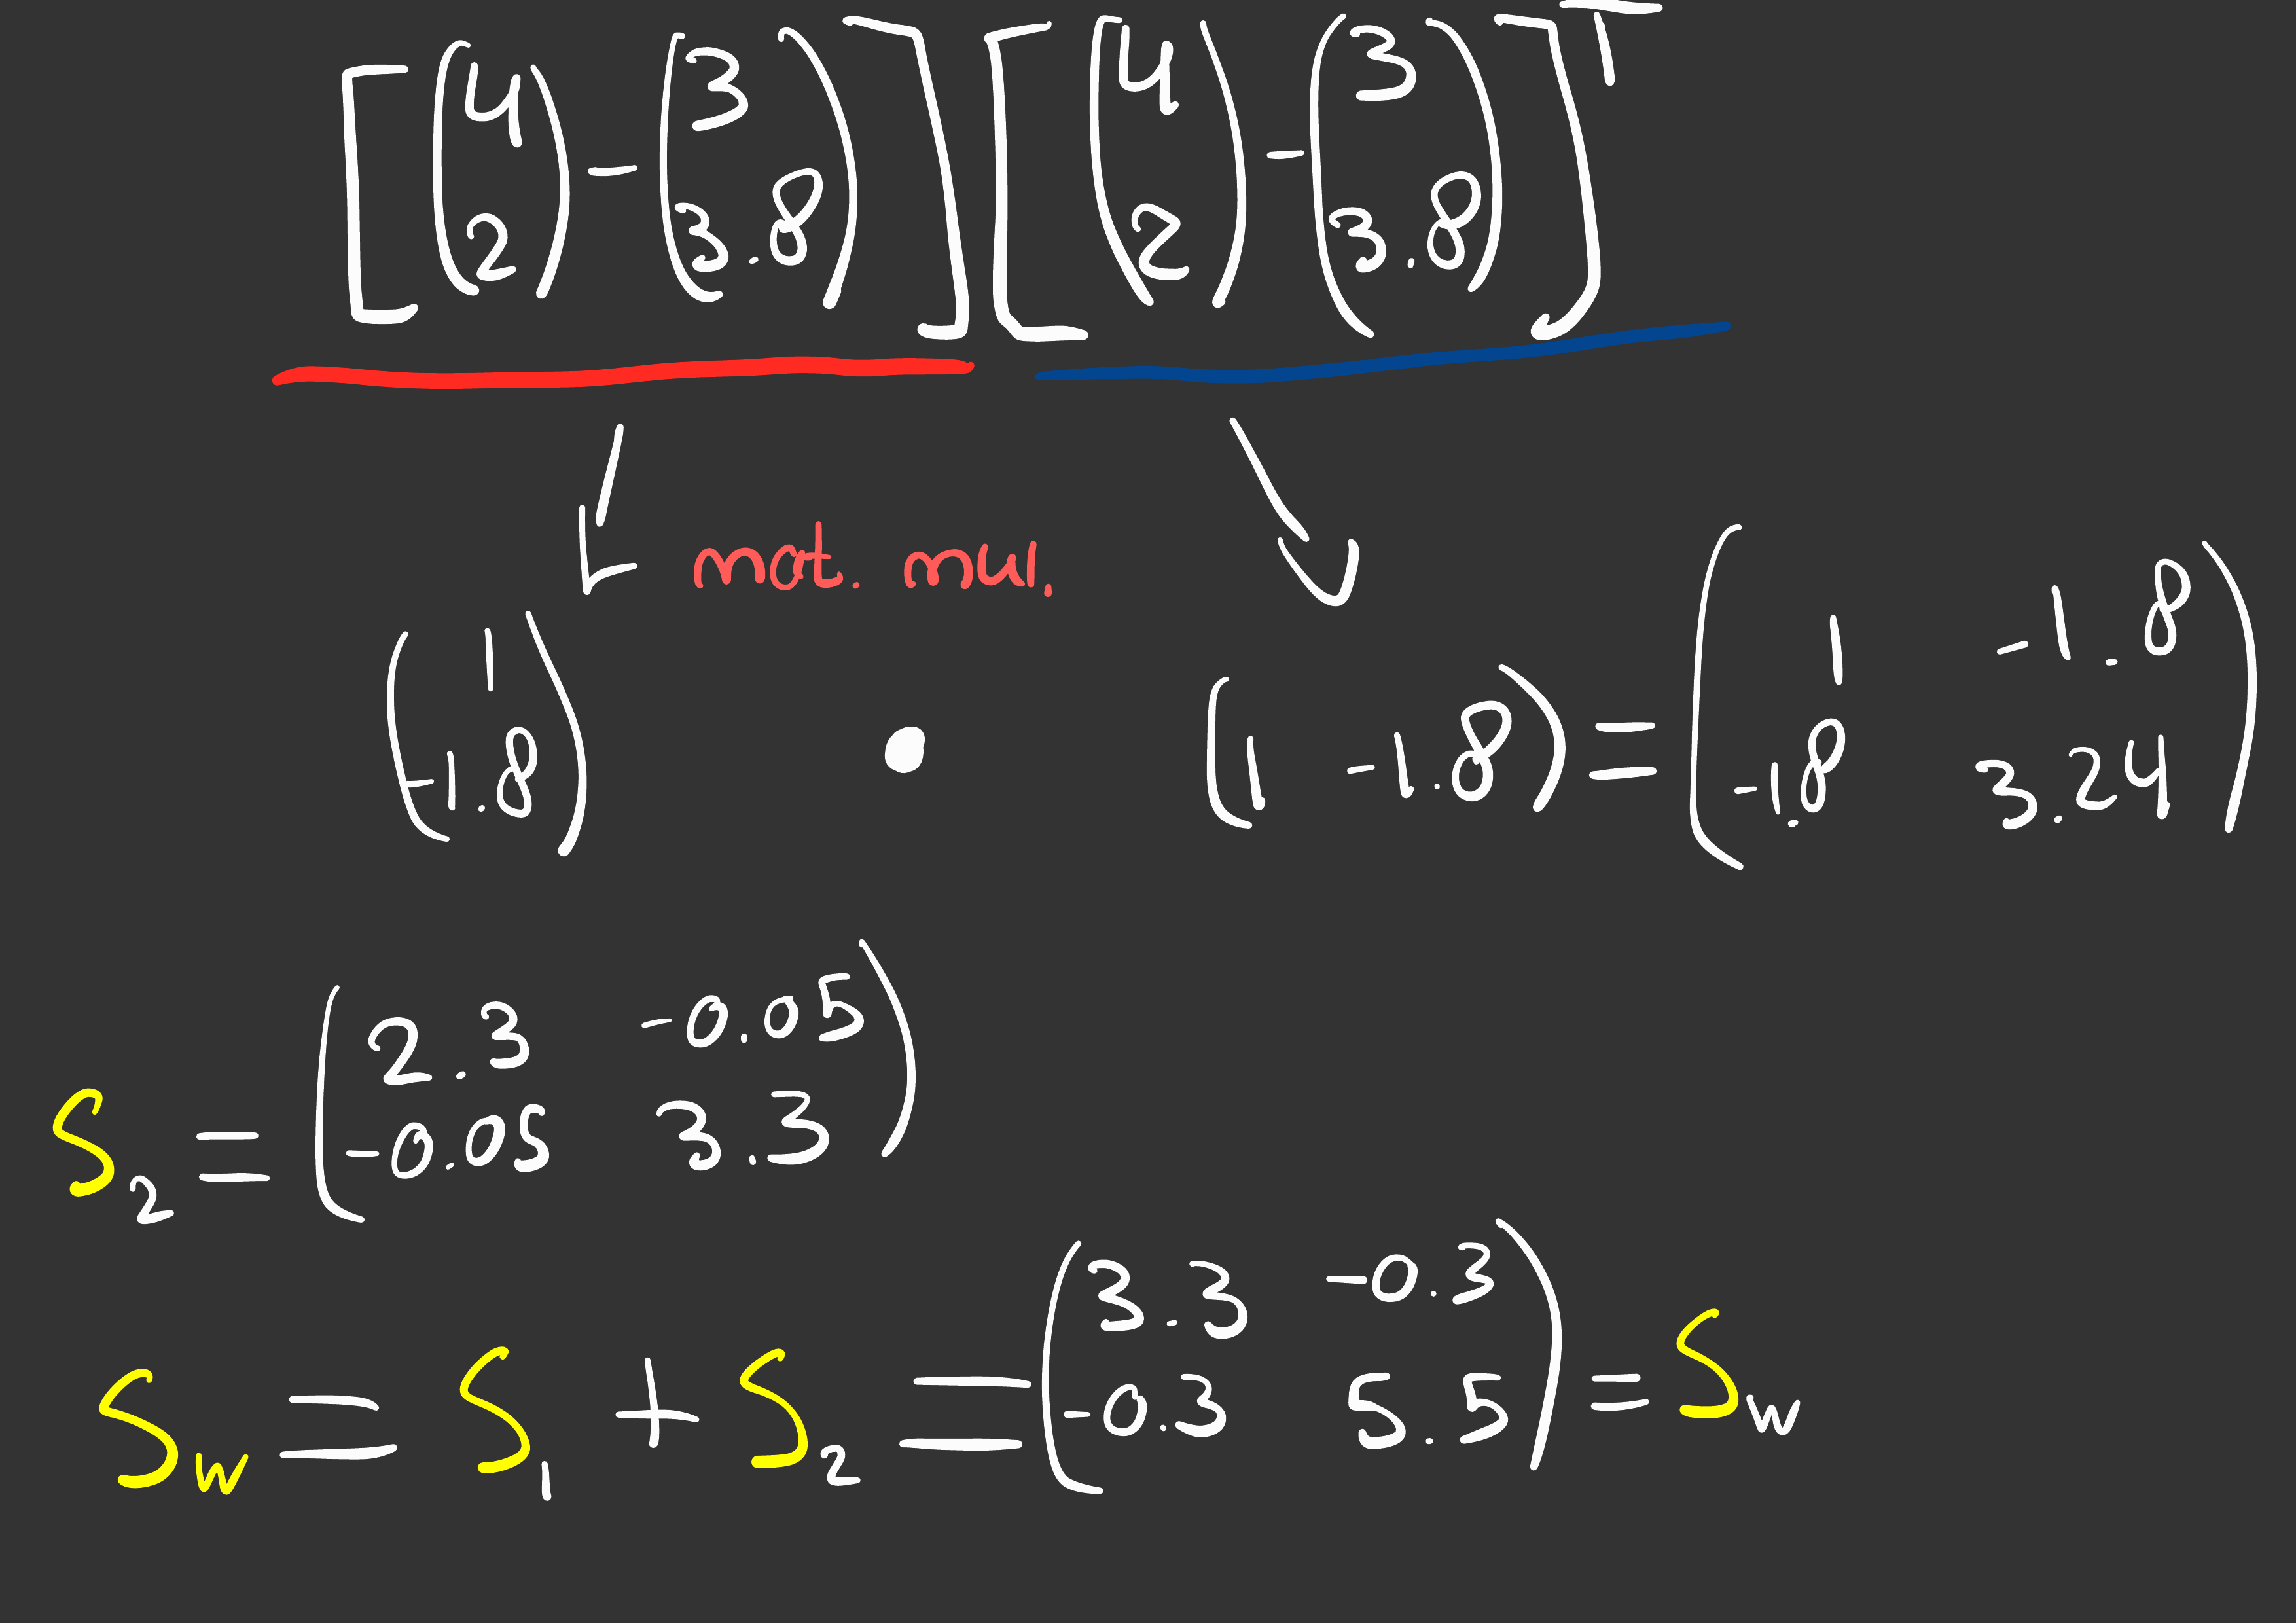 [(4 2) - (3 3.8)] [(4 2) - (3 3.8)]^T
mat. mul.
(1 -1.8) • (1 -1.8) = (1 -1.8 -1.8 3.24)
S₂ = (2.3 -0.05 -0.05 3.3)
S_W = S₁ + S₂ = (3.3 -0.3 -0.3 5.5) = S_W